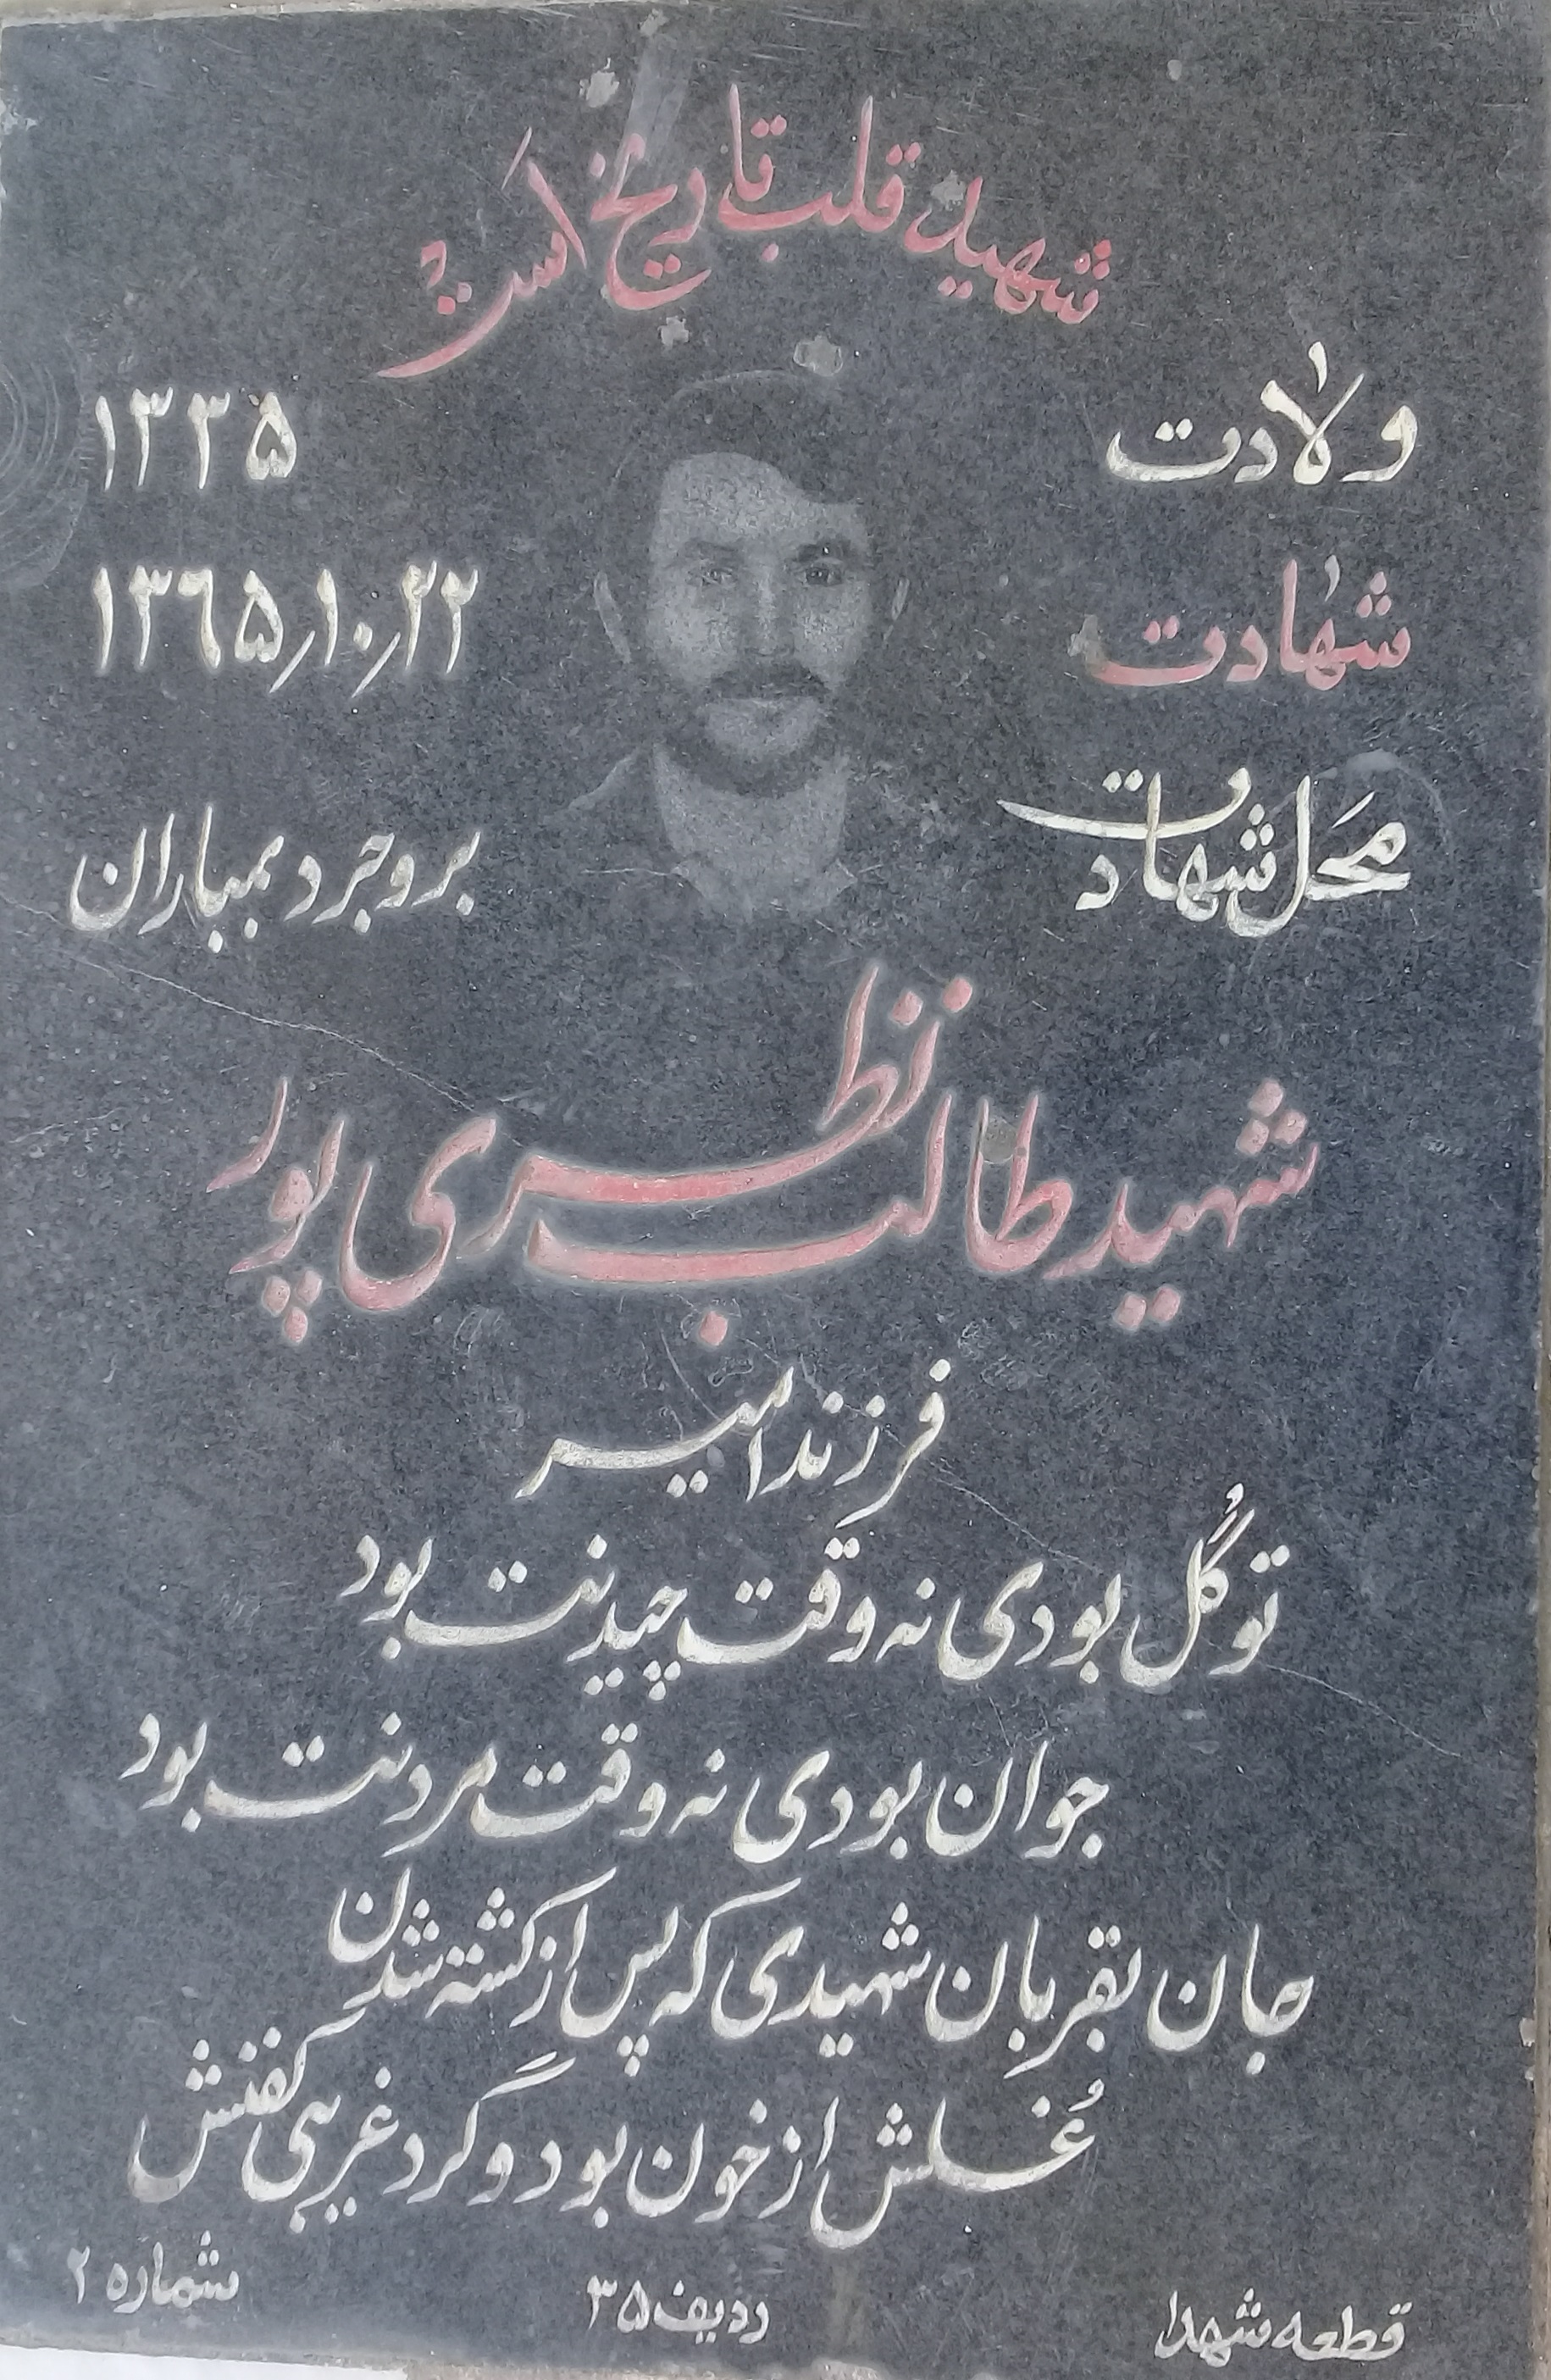 شهید قلب تاریخ است
ولادت ۱۳۳۵
شهادت ۱۳٦۵/۱۰/۲۲
محل شهادت بروجرد بمباران
شهید طالب نظری پور
فرزند امیر
تو گُل بودی نه وقت چیدنت بود
جوان بودی نه وقت مردنت بود
جان بقربان شهیدی که پس از کشته شدن
غُسلش از خون بود و گرد غریبی کفنش
قطعه شهدا ردیف ۳۵ شماره ۲